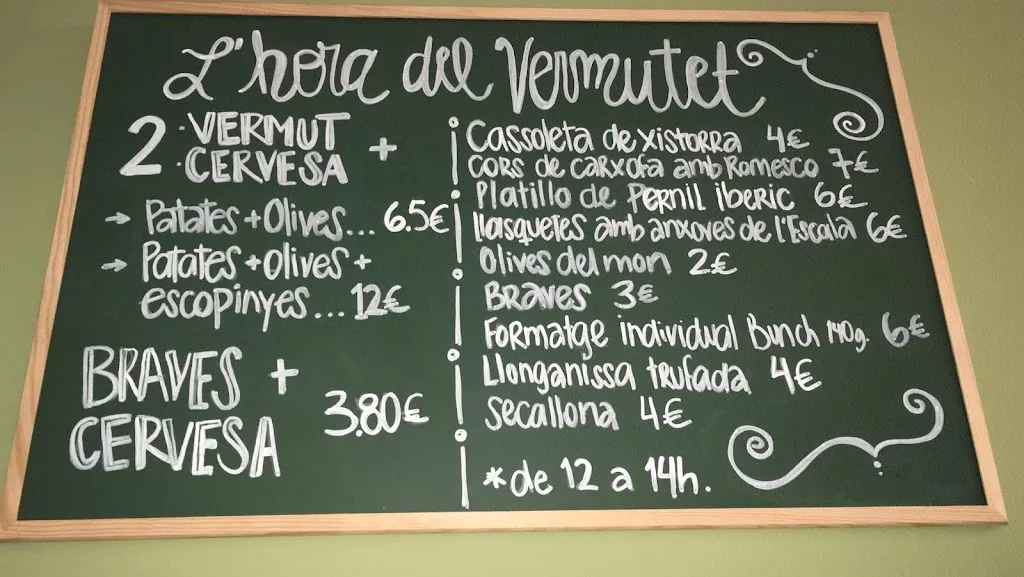 L'hora del Vermutet
2 · VERMUT
· CERVESA +
→ Patates + Olives... 6.5€
→ Patates + olives +
escopinyes... 12€
BRAVES +
CERVESA 3.80€
Cassoleta de xistorra 4€
cors de carxofa amb Romesco 7€
Platillo de Pernil iberic 6€
llasquetes amb anxoves de l'Escala 6€
Olives del mon 2€
Braves 3€
Formatge individual Bunch 140g. 6€
Llonganissa trufada 4€
secallona 4€
*de 12 a 14h.